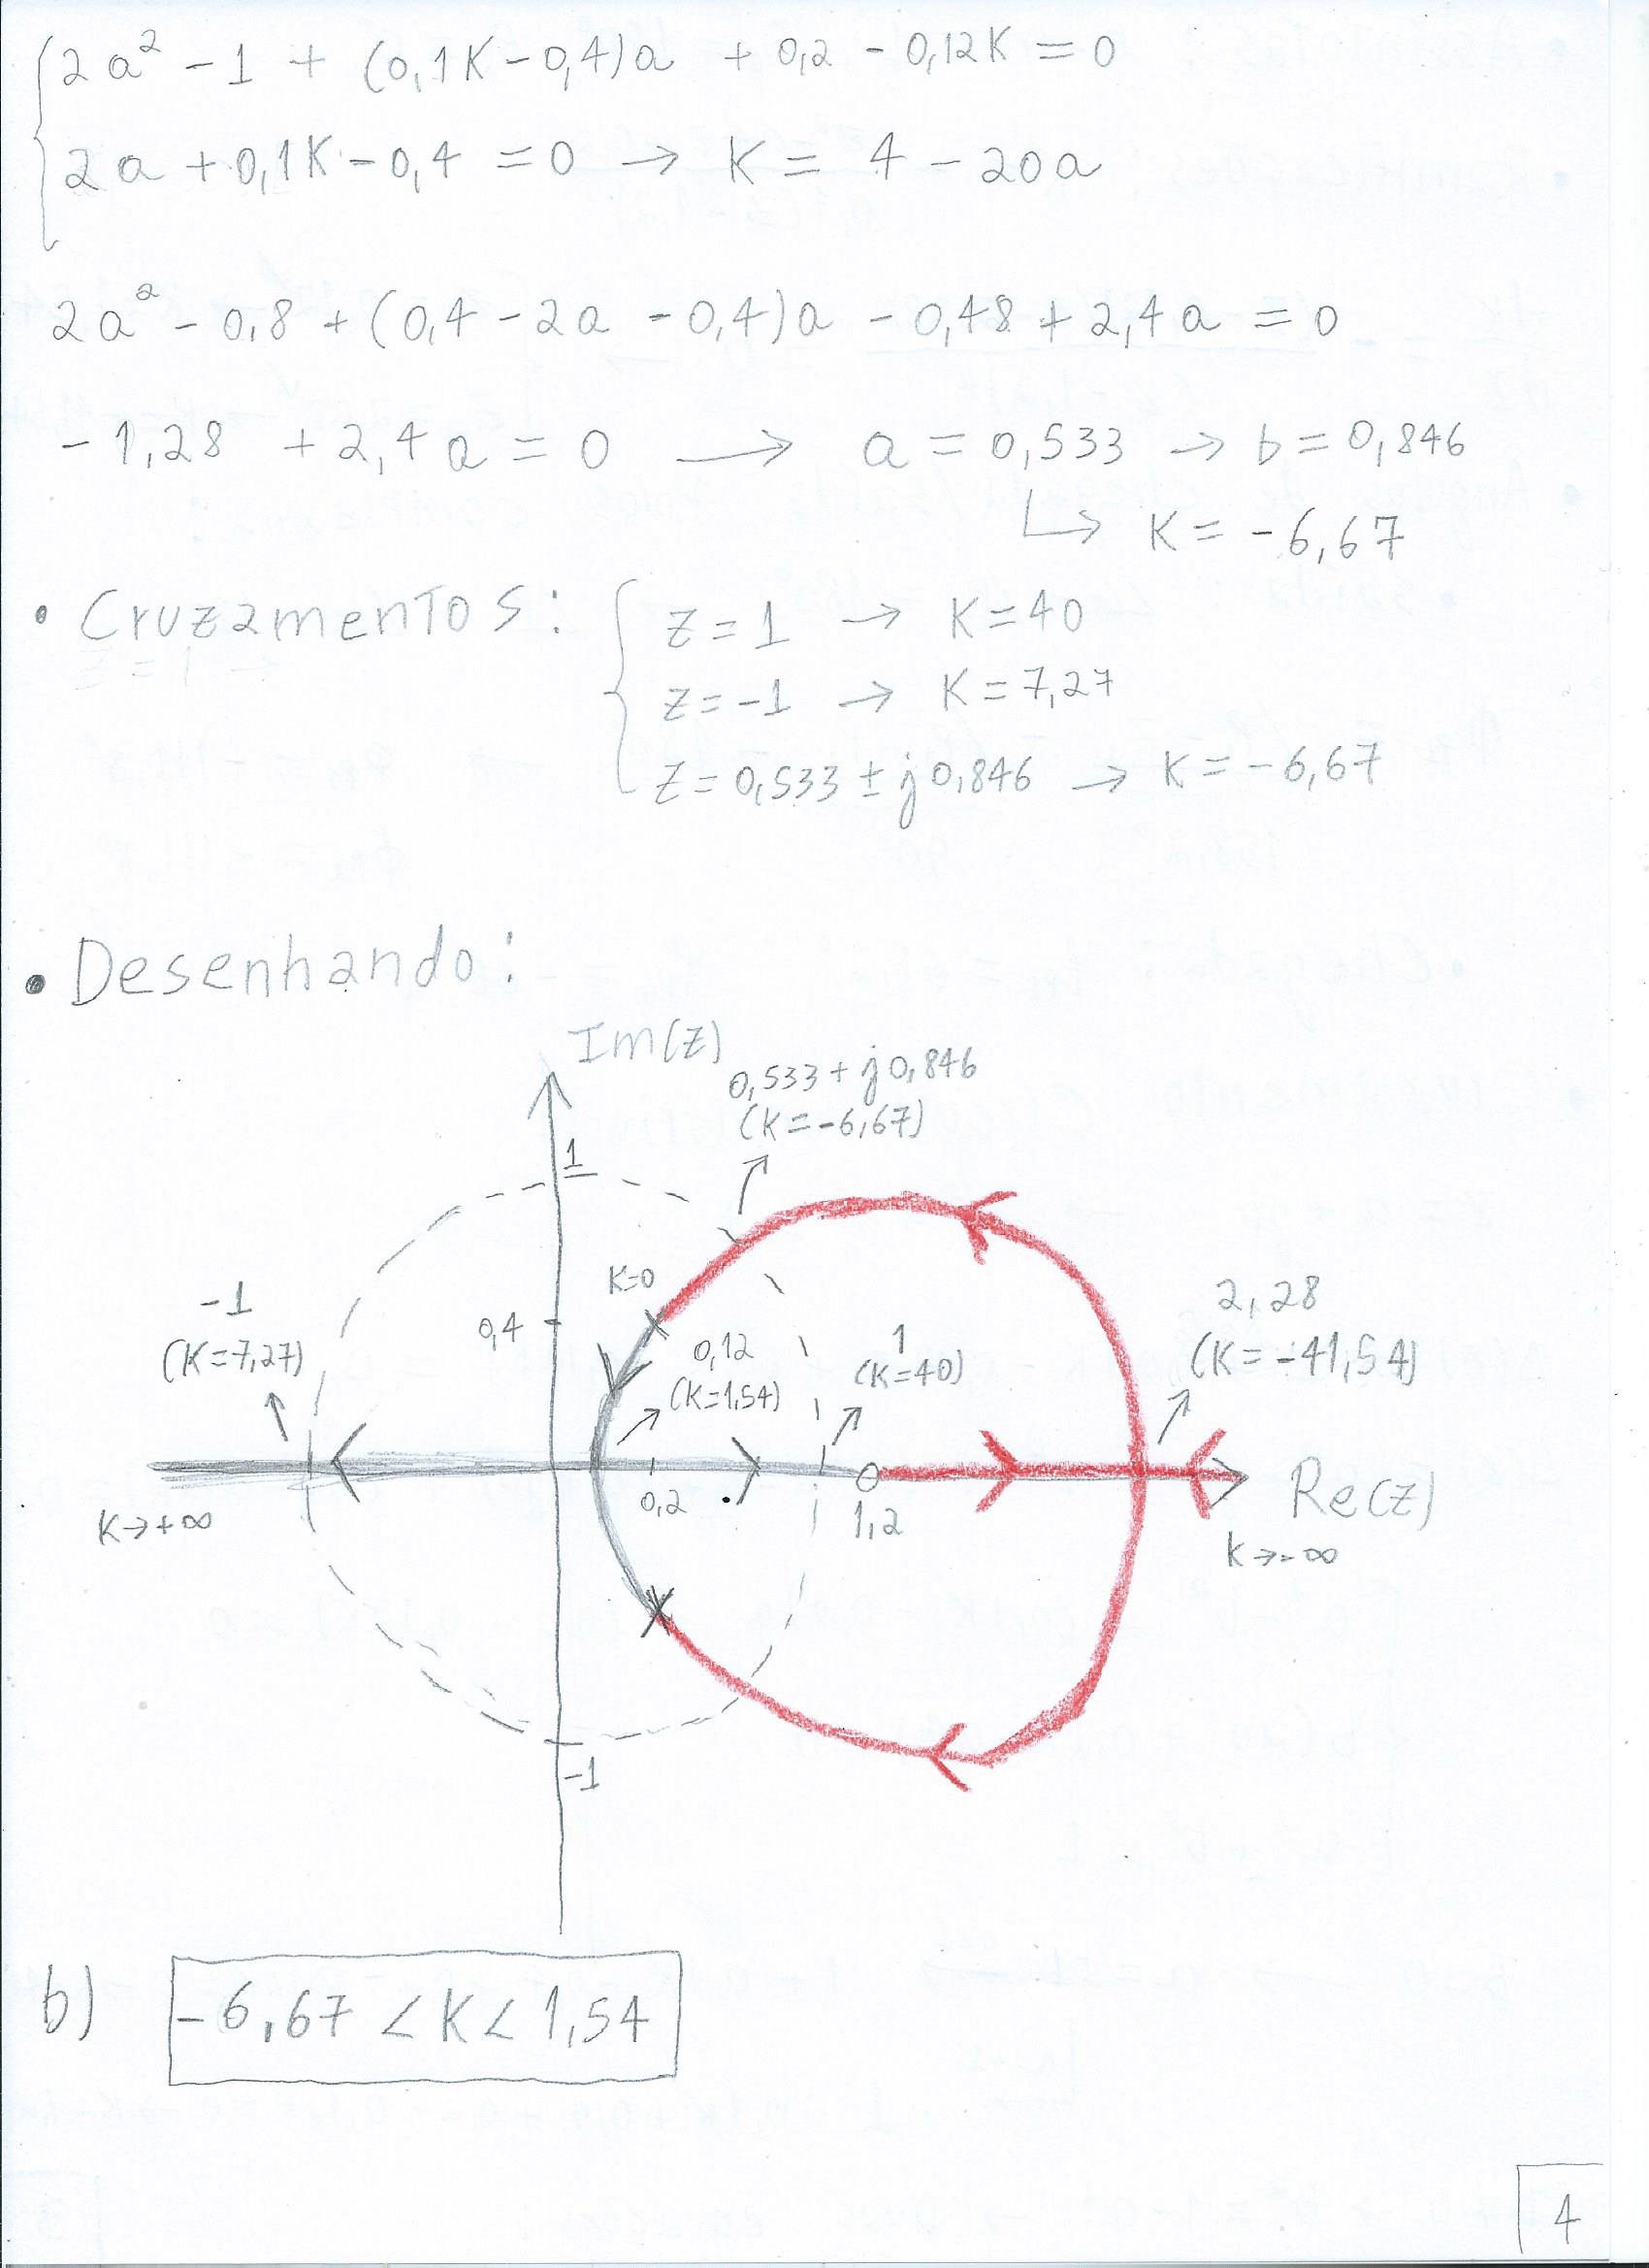 2a² - 1 + (0,1K - 0,4)a + 0,2 - 0,12K = 0
2a + 0,1K - 0,4 = 0 → K = 4 - 20a
2a² - 0,8 + (0,4 - 2a - 0,4)a - 0,48 + 2,4a = 0
-1,28 + 2,4a = 0 → a = 0,533 → b = 0,846
↳ K = -6,67
• Cruzamentos:
z = 1 → K = 40
z = -1 → K = 7,27
z = 0,533 ± j0,846 → K = -6,67
• Desenhando:
Im(z)
0,533 + j0,846
(K = -6,67)
1
K=0
-1
(K=7,27)
0,4
0,12
(K=1,54)
1
(K=40)
2,28
(K=-41,54)
K→+∞
0,2
1,2
Re(z)
K→-∞
-1
b) -6,67 < K < 1,54
4